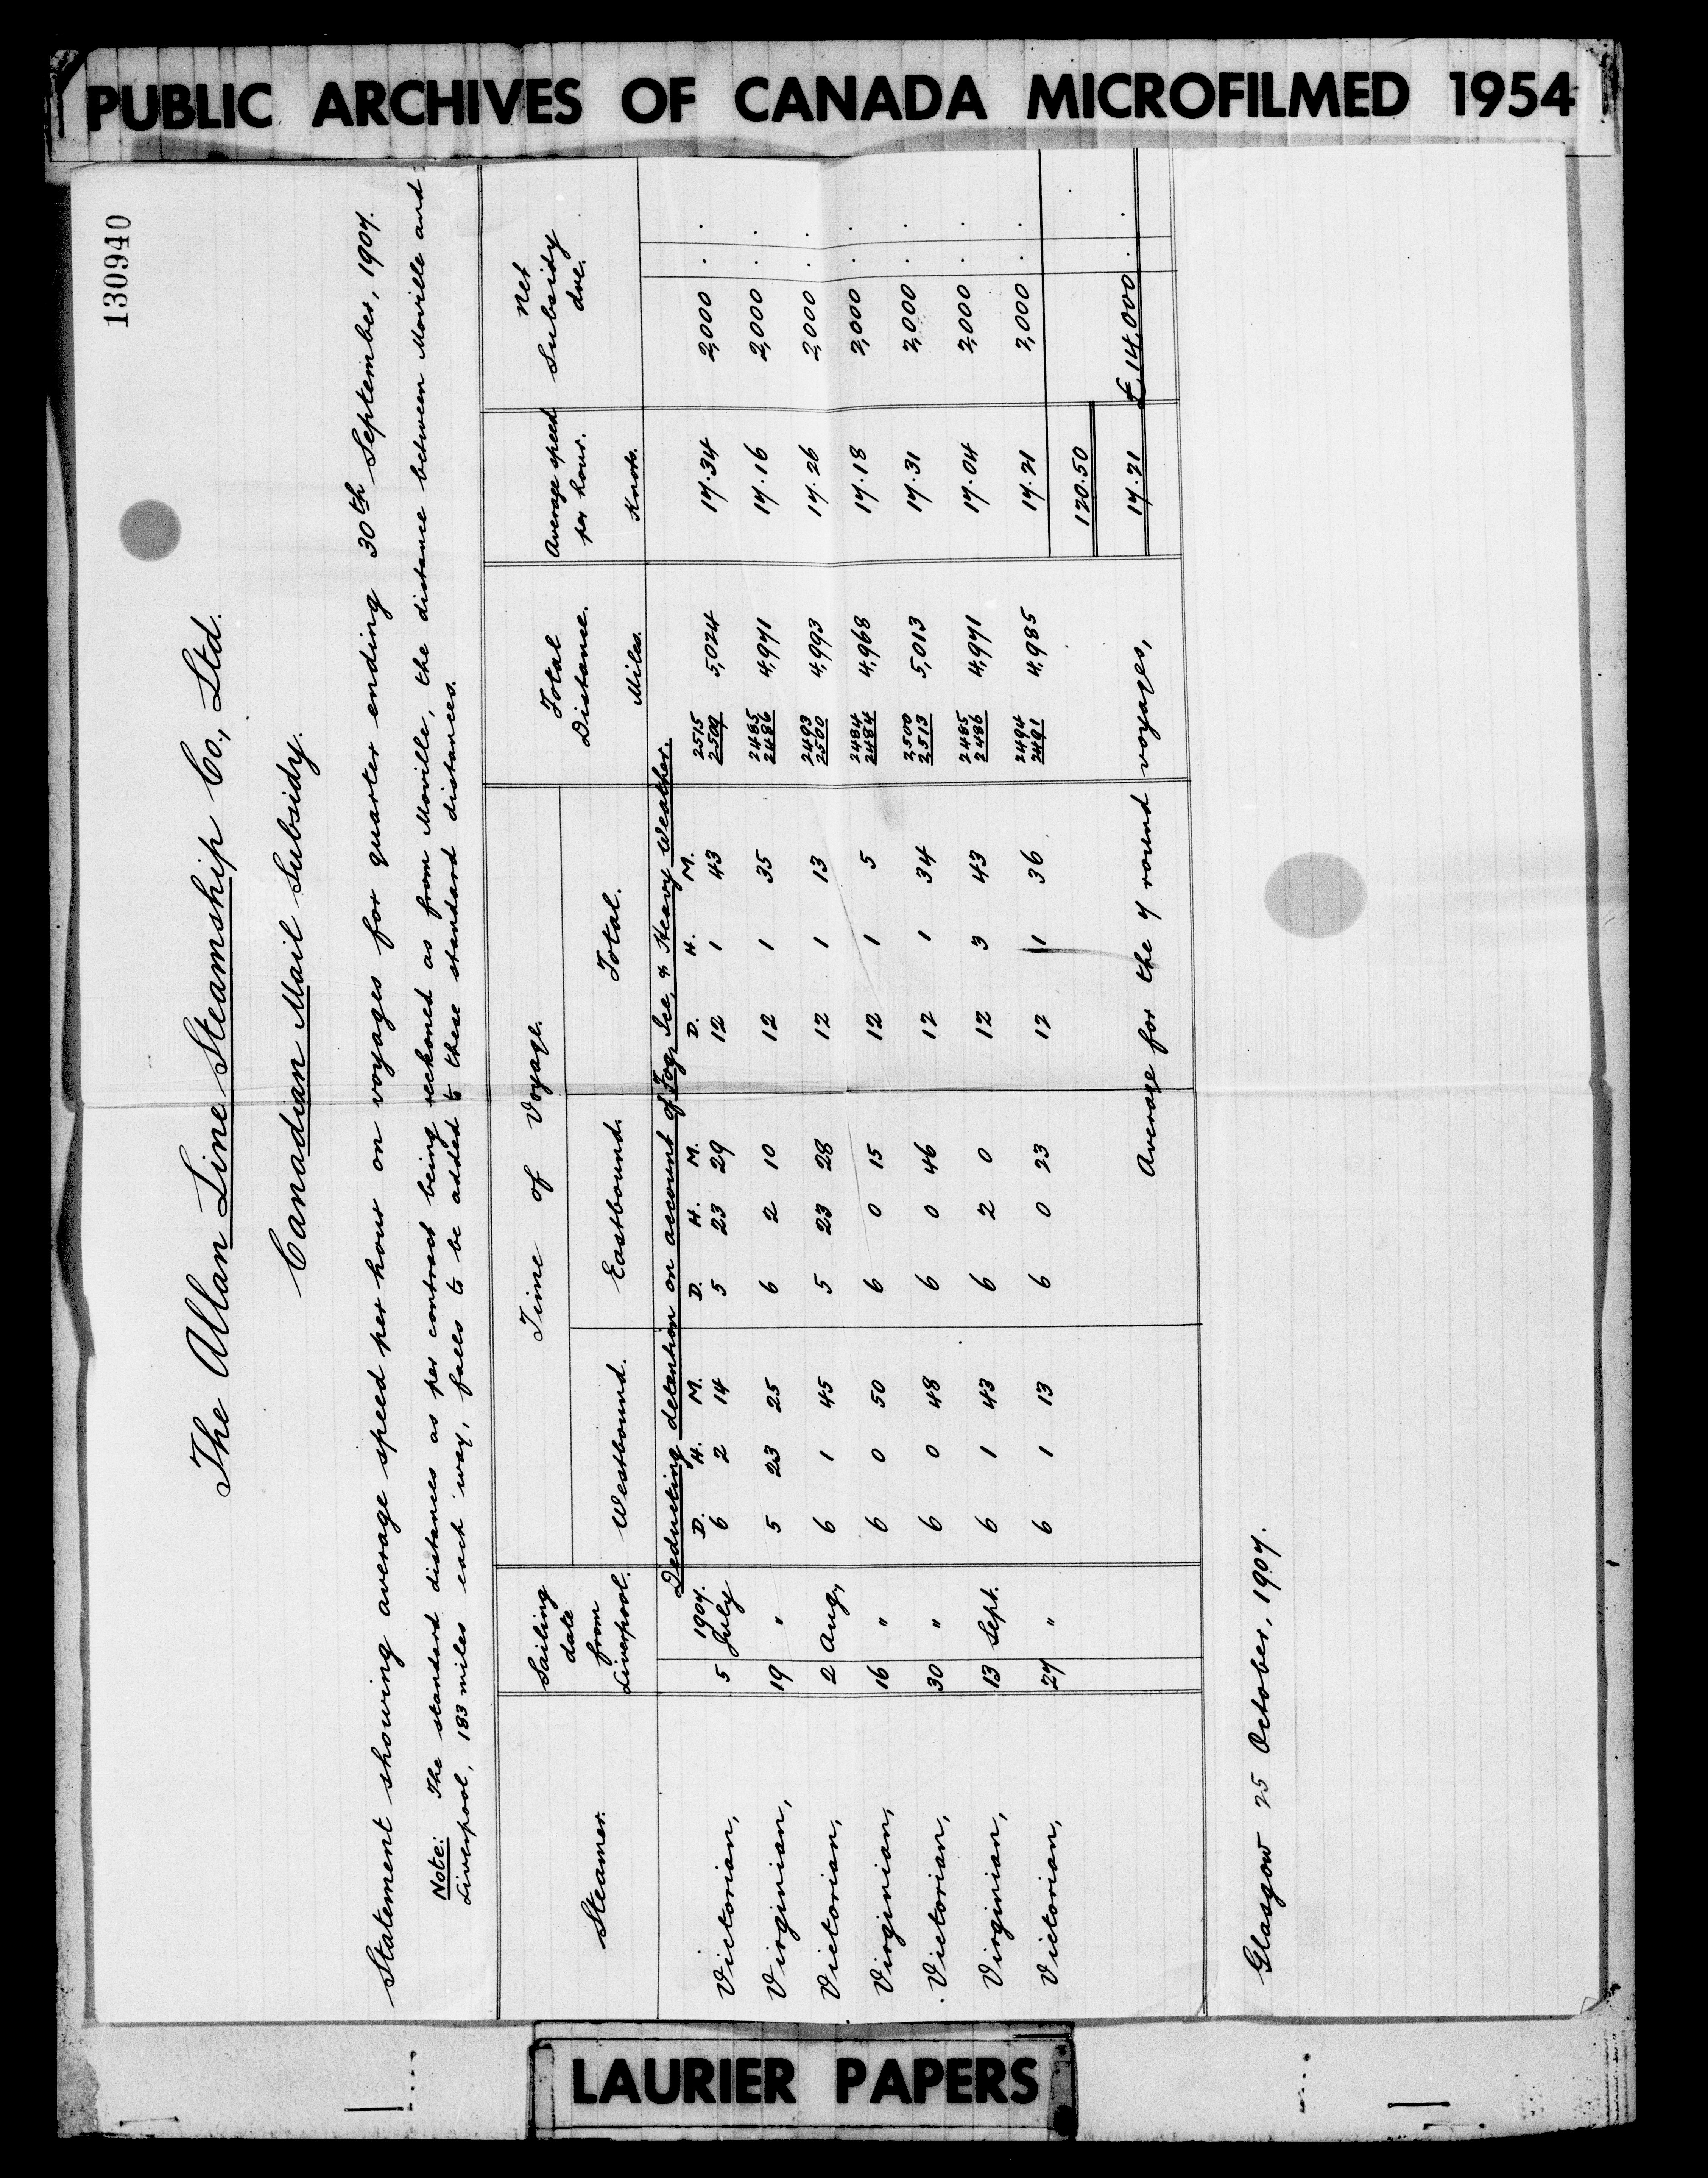 PUBLIC ARCHIVES OF CANADA MICROFILMED 1954
130940
The Allan Line Steamship Co., Ltd.
Canadian Mail Subsidy.
Statement showing average speed per hour on voyages for quarter ending 30th September, 1907.
Note: The standard distances as per contract being reckoned as from Moville, the distance between Moville and
Liverpool, 183 miles each way, falls to be added to these standard distances.
Steamer. Sailing date from Liverpool. Time of Voyage. Total Distance. Average speed per hour. Net Subsidy due.
Westbound. Eastbound. Total. Miles. Knots.
Deducting detention on account of Fog, Ice, & Heavy Weather.
1907. D. H. M. D. H. M. D. H. M.
Victorian, 5 July 6 2 14 5 23 29 12 1 43 2515 2509 5,024 17.34 2,000 . .
Virginian, 19 " 5 23 25 6 2 10 12 1 35 2485 2486 4,971 17.16 2,000 . .
Victorian, 2 Aug, 6 1 45 5 23 28 12 1 13 2493 2500 4,993 17.26 2,000 . .
Virginian, 16 " 6 0 50 6 0 15 12 1 5 2484 2484 4,968 17.18 2,000 . .
Victorian, 30 " 6 0 48 6 0 46 12 1 34 2,500 2,513 5,013 17.31 2,000 . .
Virginian, 13 Sept. 6 1 43 6 2 0 12 3 43 2485 2486 4,971 17.04 2,000 . .
Victorian, 27 " 6 1 13 6 0 23 12 1 36 2494 2491 4,985 17.21 2,000 . .
120.50
Average for the 7 round voyages, 17.21 £14,000 . .
Glasgow 25 October, 1907.
LAURIER PAPERS